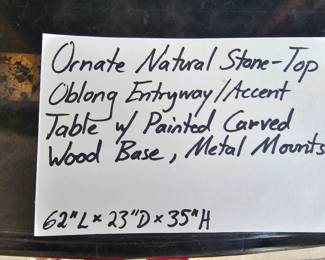 Ornate Natural Stone-Top
Oblong Entryway/Accent
Table w/ Painted Carved
Wood Base, Metal Mounts
62"L x 23"D x 35"H